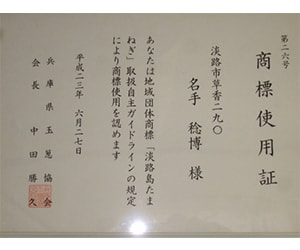 第二六号
商標使用証
淡路市草香二九〇
名手 稔博 様
あなたは地域団体商標「淡路島たま
ねぎ」取扱自主ガイドラインの規定
により商標使用を認めます
平成二三年 六月二七日
兵庫県玉葱協会
会長 中田勝久